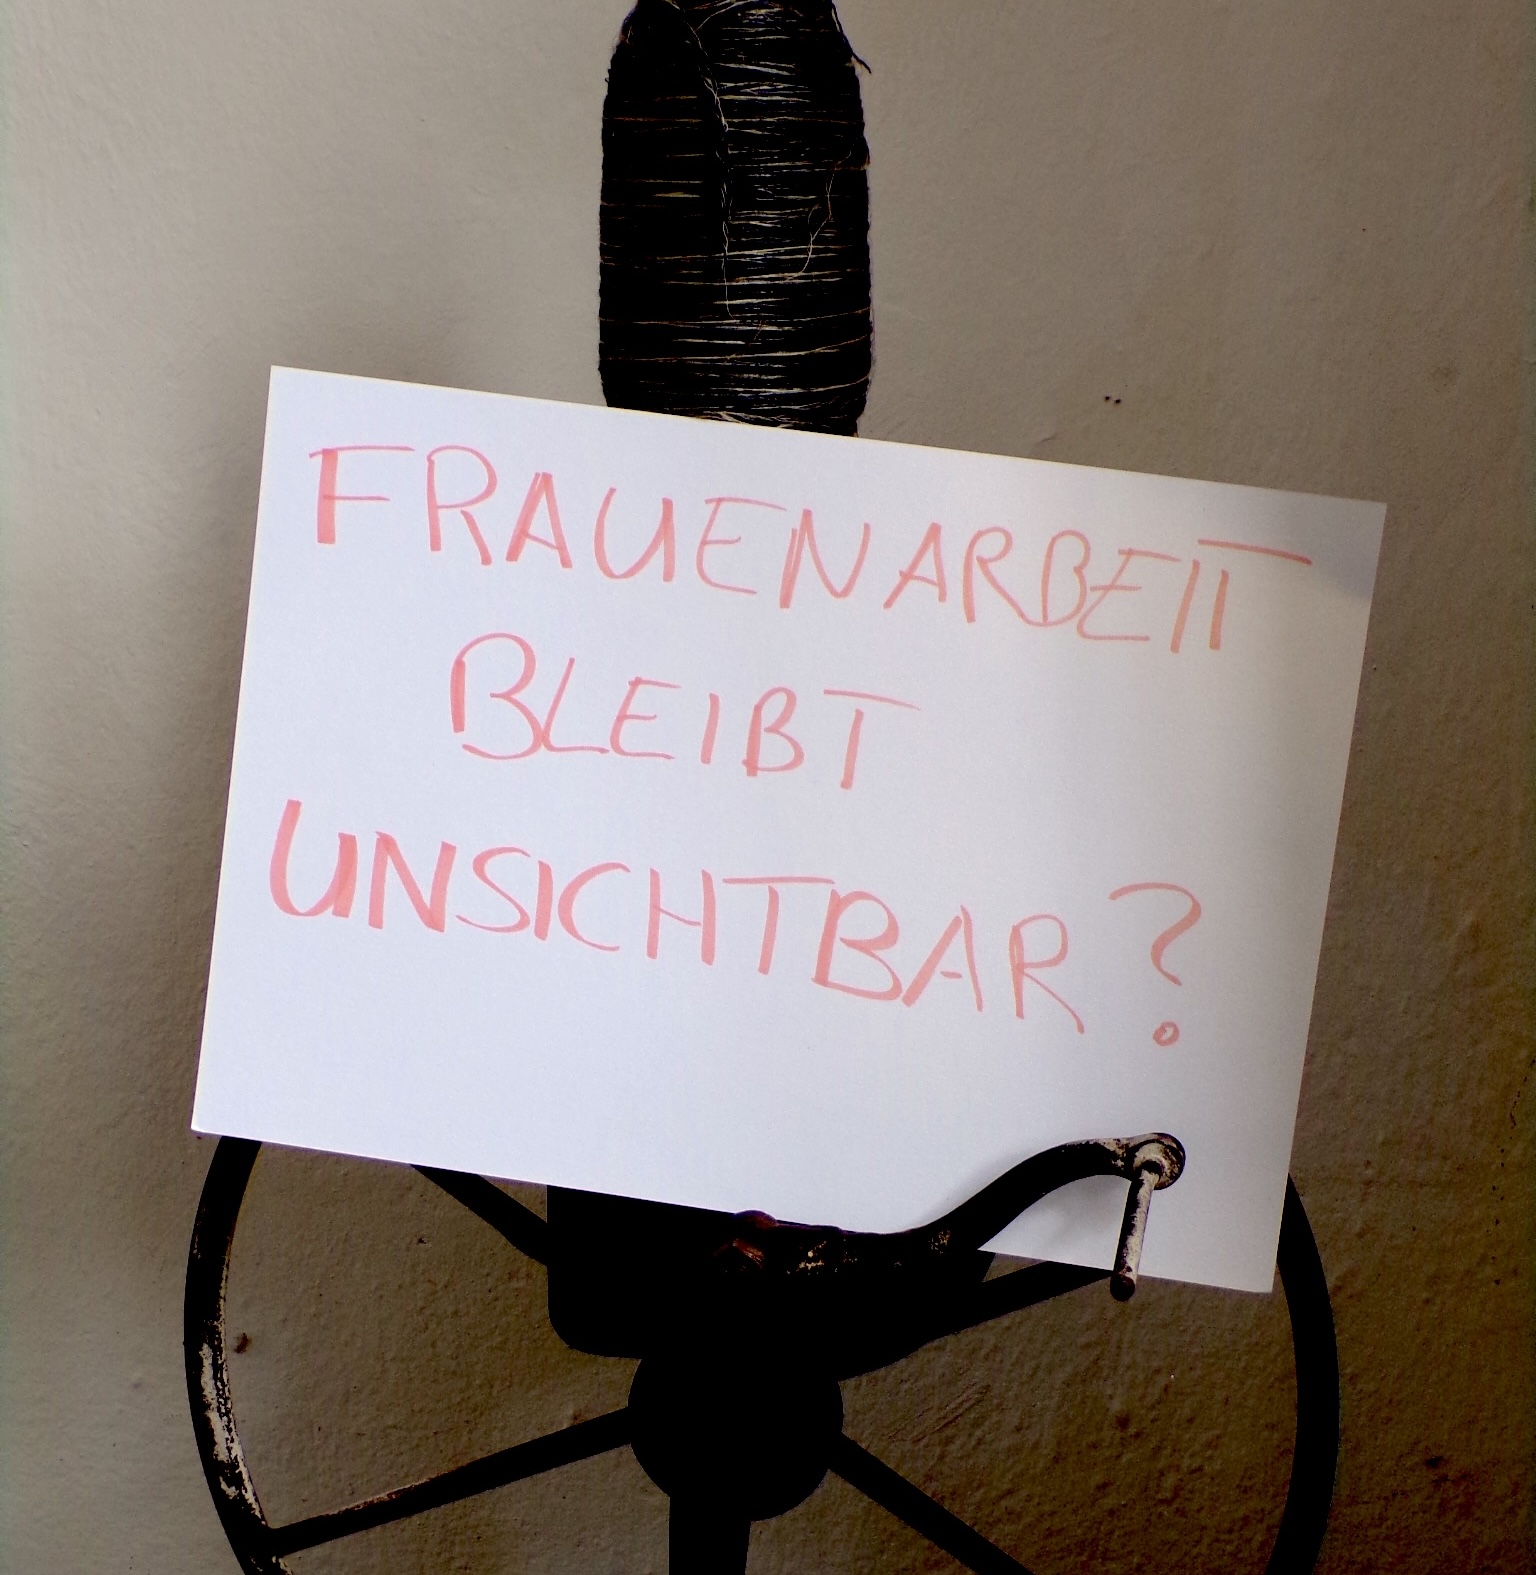 FRAUENARBEIT
BLEIBT
UNSICHTBAR?